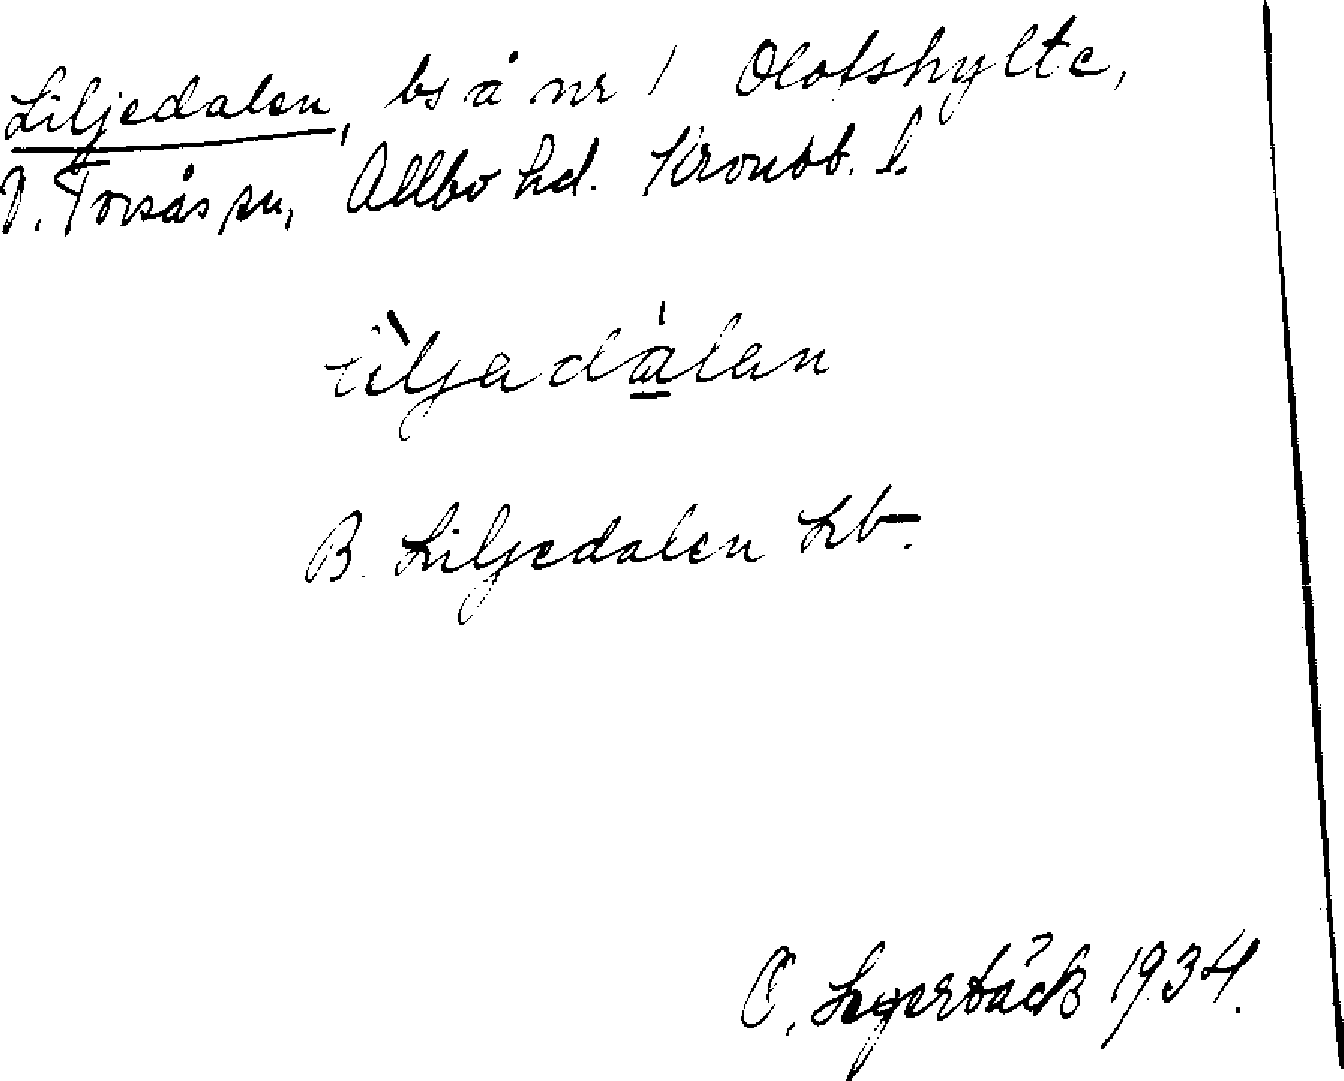 Liljedalen, bs å nr 1 Olofshylte,
V. Torsås sn, Allbo hd. Kronob. l.
liljadálan
B. Liljedalen Lb.
O. 1934.